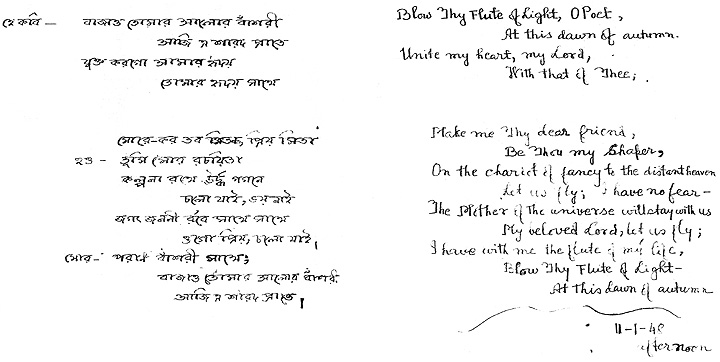 হে কবি - বাজাও তোমার আলোর বাঁশরী
আজি এ শারদ প্রাতে
যুক্ত করগো আমার হৃদয়
তোমার হৃদয় সাথে
মোরে-কর তব প্রিয় মিতা
হও - তুমি মোর রচয়িতা
কল্পনা রথে ঊর্দ্ধ গগনে
চলো যাই, ভয় নাই
জগৎ জননী রবে সাথে সাথে
ওগো প্রিয়, চলো যাই।
মোর- পরাণ বাঁশরী সাথে;
বাজাও তোমার আলোর বাঁশরী
আজি এ শারদ প্রাতে।
Blow Thy Flute of Light, O Poet,
At this dawn of autumn.
Unite my heart, my Lord,
With that of Thee;
Make me Thy dear friend,
Be Thou my Shaper,
On the chariot of fancy to the distant heaven
Let us fly; I have no fear-
The Mother of the universe will stay with us
My beloved Lord, let us fly;
I have with me the flute of my life,
Blow Thy Flute of Light-
At this dawn of autumn
11-1-48
afternoon